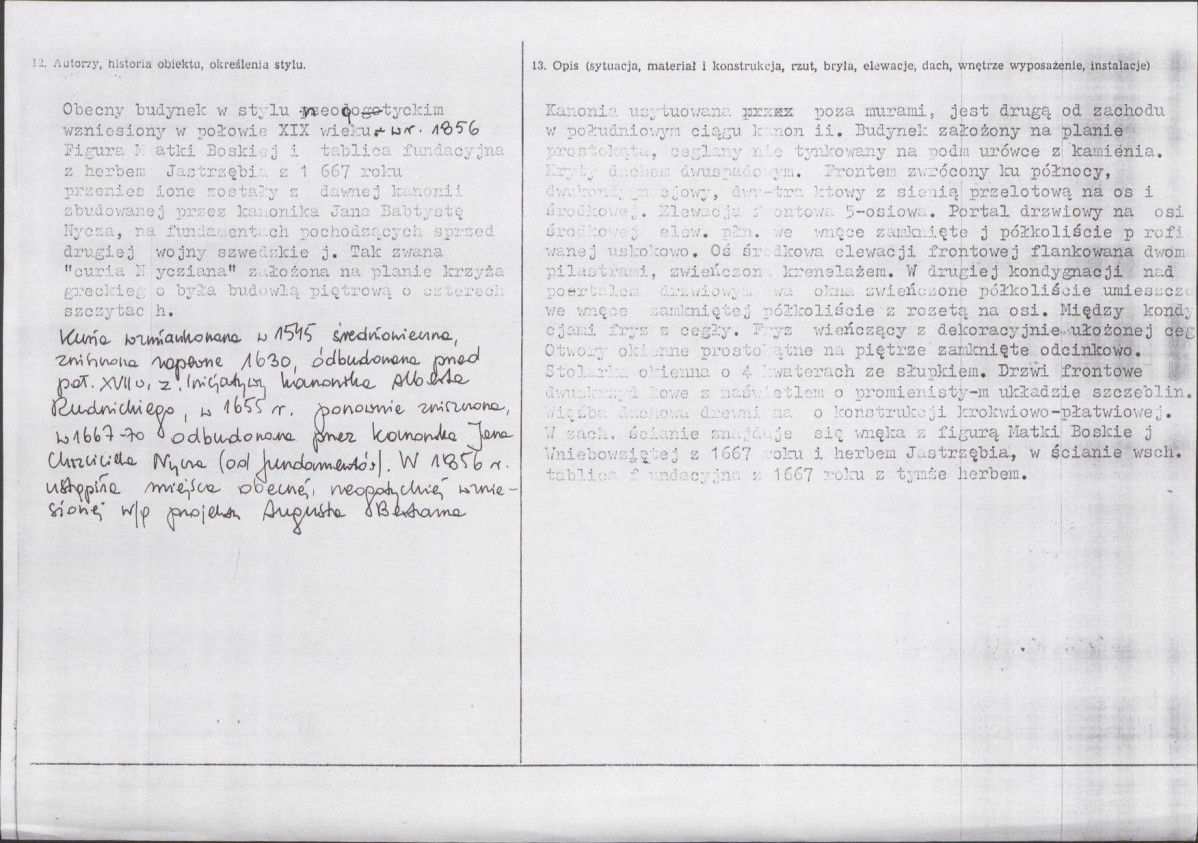 12. Autorzy, historia obiektu, określenia stylu.
Obecny budynek w stylu neogotyckim
wzniesiony w połowie XIX wieku w r. 1856
Figura M atki Boskiej i tablica fundacyjna
z herbem Jastrzębia z 1 667 roku
przenies ione zostały z dawnej kanonii
zbudowanej przez kanonika Jana Babtystę
Nycza, na fundamentach pochodzących sprzed
drugiej wojny szwedzkie j. Tak zwana
"curia N ycziana" założona na planie krzyża
greckieg o była budowlą piętrową o czterech
szczytac h.
Kuria wzmiankowana w 1545 średniowienna,
zniszczona zapewne 1630, odbudowana przed
poł. XVII w, z inicjatywy kanonika Alberta
Rudnickiego, w 1655 r. ponownie zniszczona,
w 1667-70 odbudowana przez kanonika Jana
Chrzciciela Nycza (od fundamentów). W 1856 r.
ustąpiła miejsca obecnej, neogotyckiej wznie-
sionej w/p projektu Augusta Bertrama
13. Opis (sytuacja, materiał i konstrukcja, rzut, bryła, elewacje, dach, wnętrze wyposażenie, instalacje)
Kanonia usytuowana przez poza murami, jest drugą od zachodu
w południowym ciągu kanon ii. Budynek założony na planie
prostokąta, ceglany nie tynkowany na podm urówce z kamienia.
Kryty dachem dwuspadowym. Frontem zwrócony ku północy,
dwukondygnacjowy, dwu-tra ktowy z sienią przelotową na os i
środkowej. Elewacja frontowa 5-osiowa. Portal drzwiowy na osi
środkowej elew. płn. we wnęce zamknięte j półkoliście p rofi
wanej uskokowo. Oś środkowa elewacji frontowej flankowana dwom
pilastrami, zwieńczona krenelażem. W drugiej kondygnacji nad
poertalem drzwiowym wa okna zwieńczone półkoliście umieszcz
we wnęce zamkniętej półkoliście z rozetą na osi. Między kondy
cjami fryz z cegły. Fryz wieńczący z dekoracyjnie ułożonej ceg
Otwory okienne prostokątne na piętrze zamknięte odcinkowo.
Stolarka okienna o 4 kwaterach ze słupkiem. Drzwi frontowe
dwuskrzyd łowe z naświetlem o promienisty-m układzie szczeblin.
Więźba dachowa drewni na o konstrukcji krokwiowo-płatwiowej.
W zach. ścianie znajduje się wnęka z figurą Matki Boskie j
Wniebowziętej z 1667 roku i herbem Jastrzębia, w ścianie wsch.
tablica f undacyjna z 1667 roku z tymże herbem.